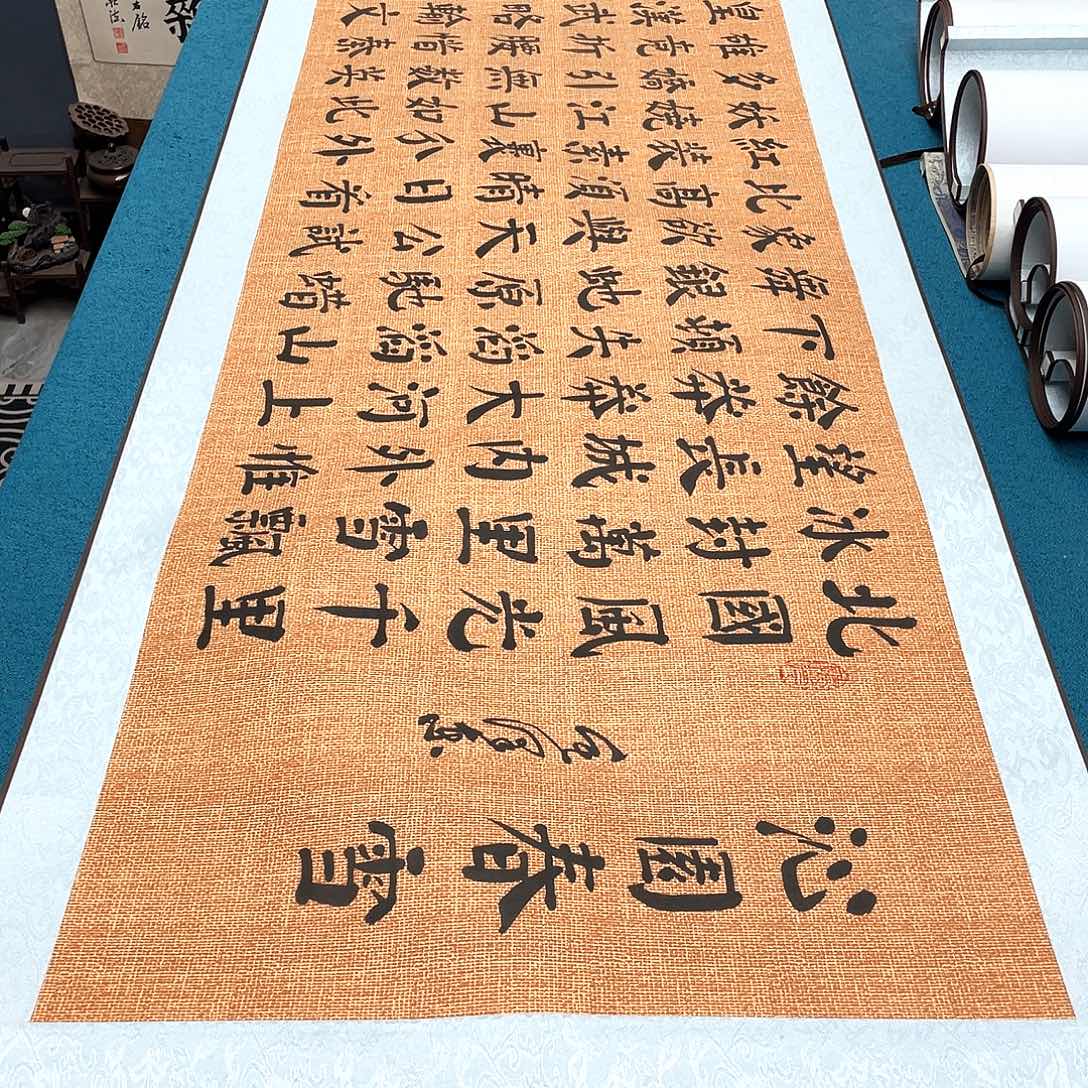 沁園春雪
北國風光千里
冰封萬里雪飄
望長城內外惟
餘莽莽大河上
下頓失滔滔山
舞銀蛇原馳蜡
象欲與天公試
比高須晴日看
紅裝素裹分外
妖嬈江山如此
多嬌引無數英
雄競折腰惜秦
皇漢武略輸文